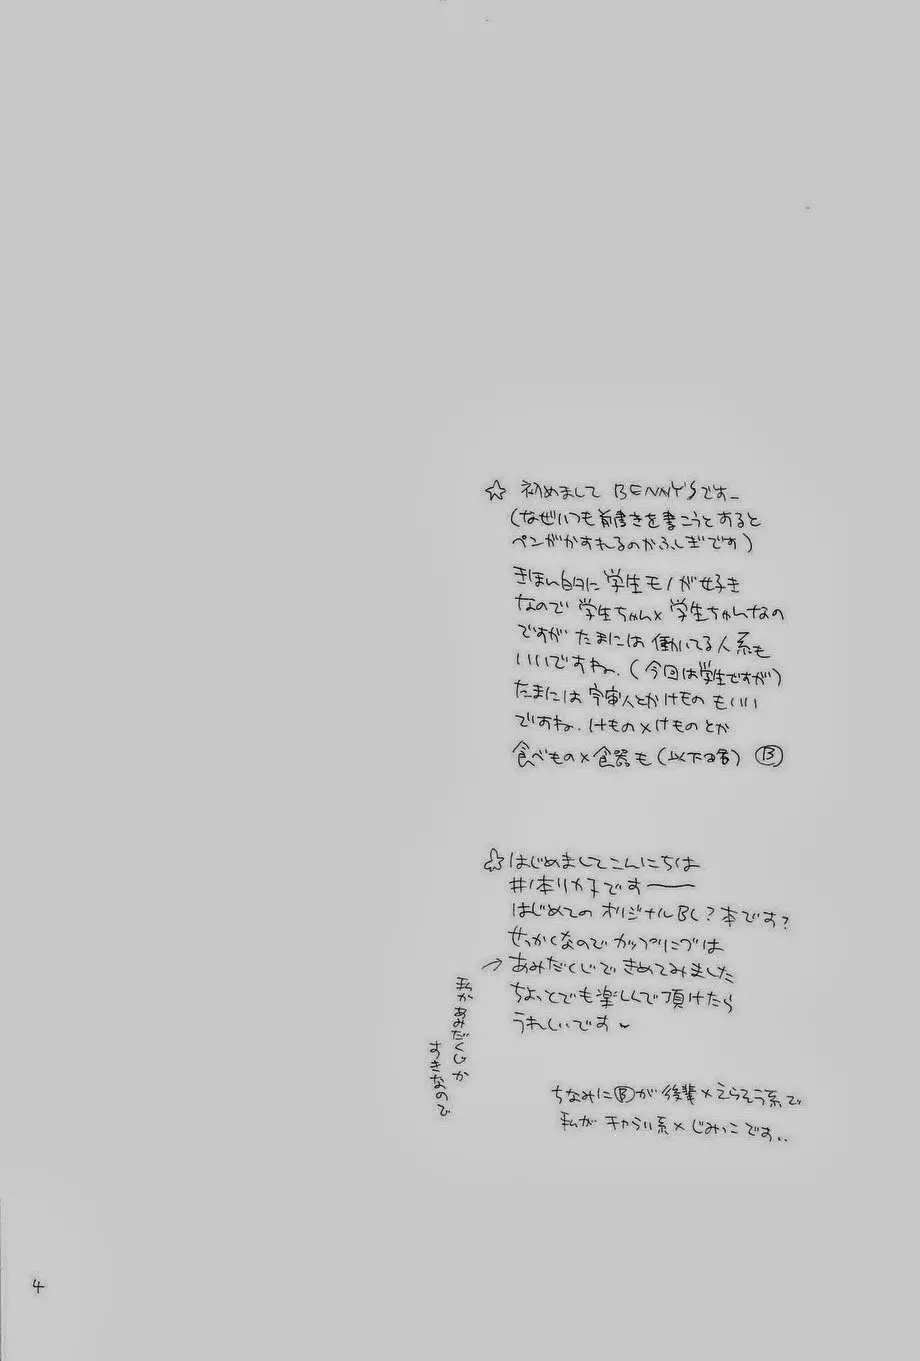 ☆ 初めまして BENNY'Sです_
(なぜいつも前書きを書こうとすると
ペンがかすれるのかふしぎです)
きほん的に 学生モノが好き
なので 学生ちゃん×学生ちゃんなの
ですが たまには 働いてる人系も
いいですね.(今回は学生ですが)
たまには 宇宙人とかけもの もいい
ですね. けもの×けものとか
食べもの×食器も(以下略) Ⓑ
☆はじめましてこんにちは
井本リカ子です──
はじめての オリジナルBL?本です?
せっかくなのでカップリングは
→あみだくじで きめてみました
私があみだくじが
すきなので
ちょっとでも楽しんで頂けたら
うれしいです
ちなみにⒷが 後輩×えらそう系で
私が チャらい系×じみっこです..
4